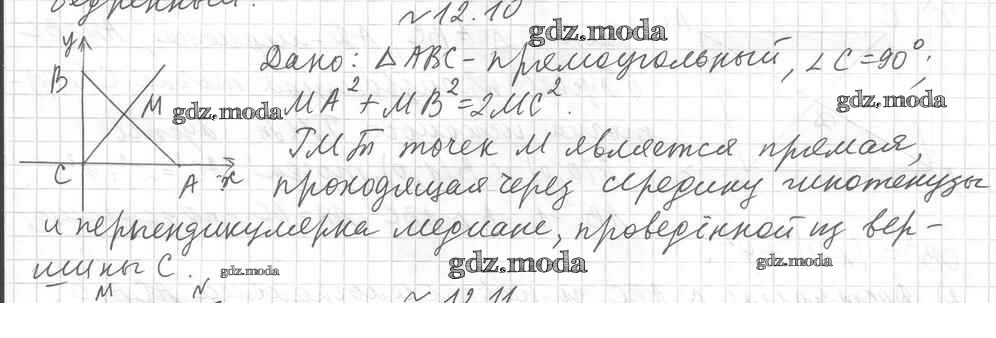 ведренный.
№12.10
gdz.moda
Дано: △ABC - прямоугольный, ∠C=90°;
y
B
M
gdz.moda
MA²+MB²=2MC².
gdz.moda
ГМТ точек M является прямая,
C
A
x
проходящая через середину гипотенузы
и перпендикулярна медиане, проведённой из вер-
шины C.
gdz.moda
gdz.moda
gdz.moda
M
N
№12.11